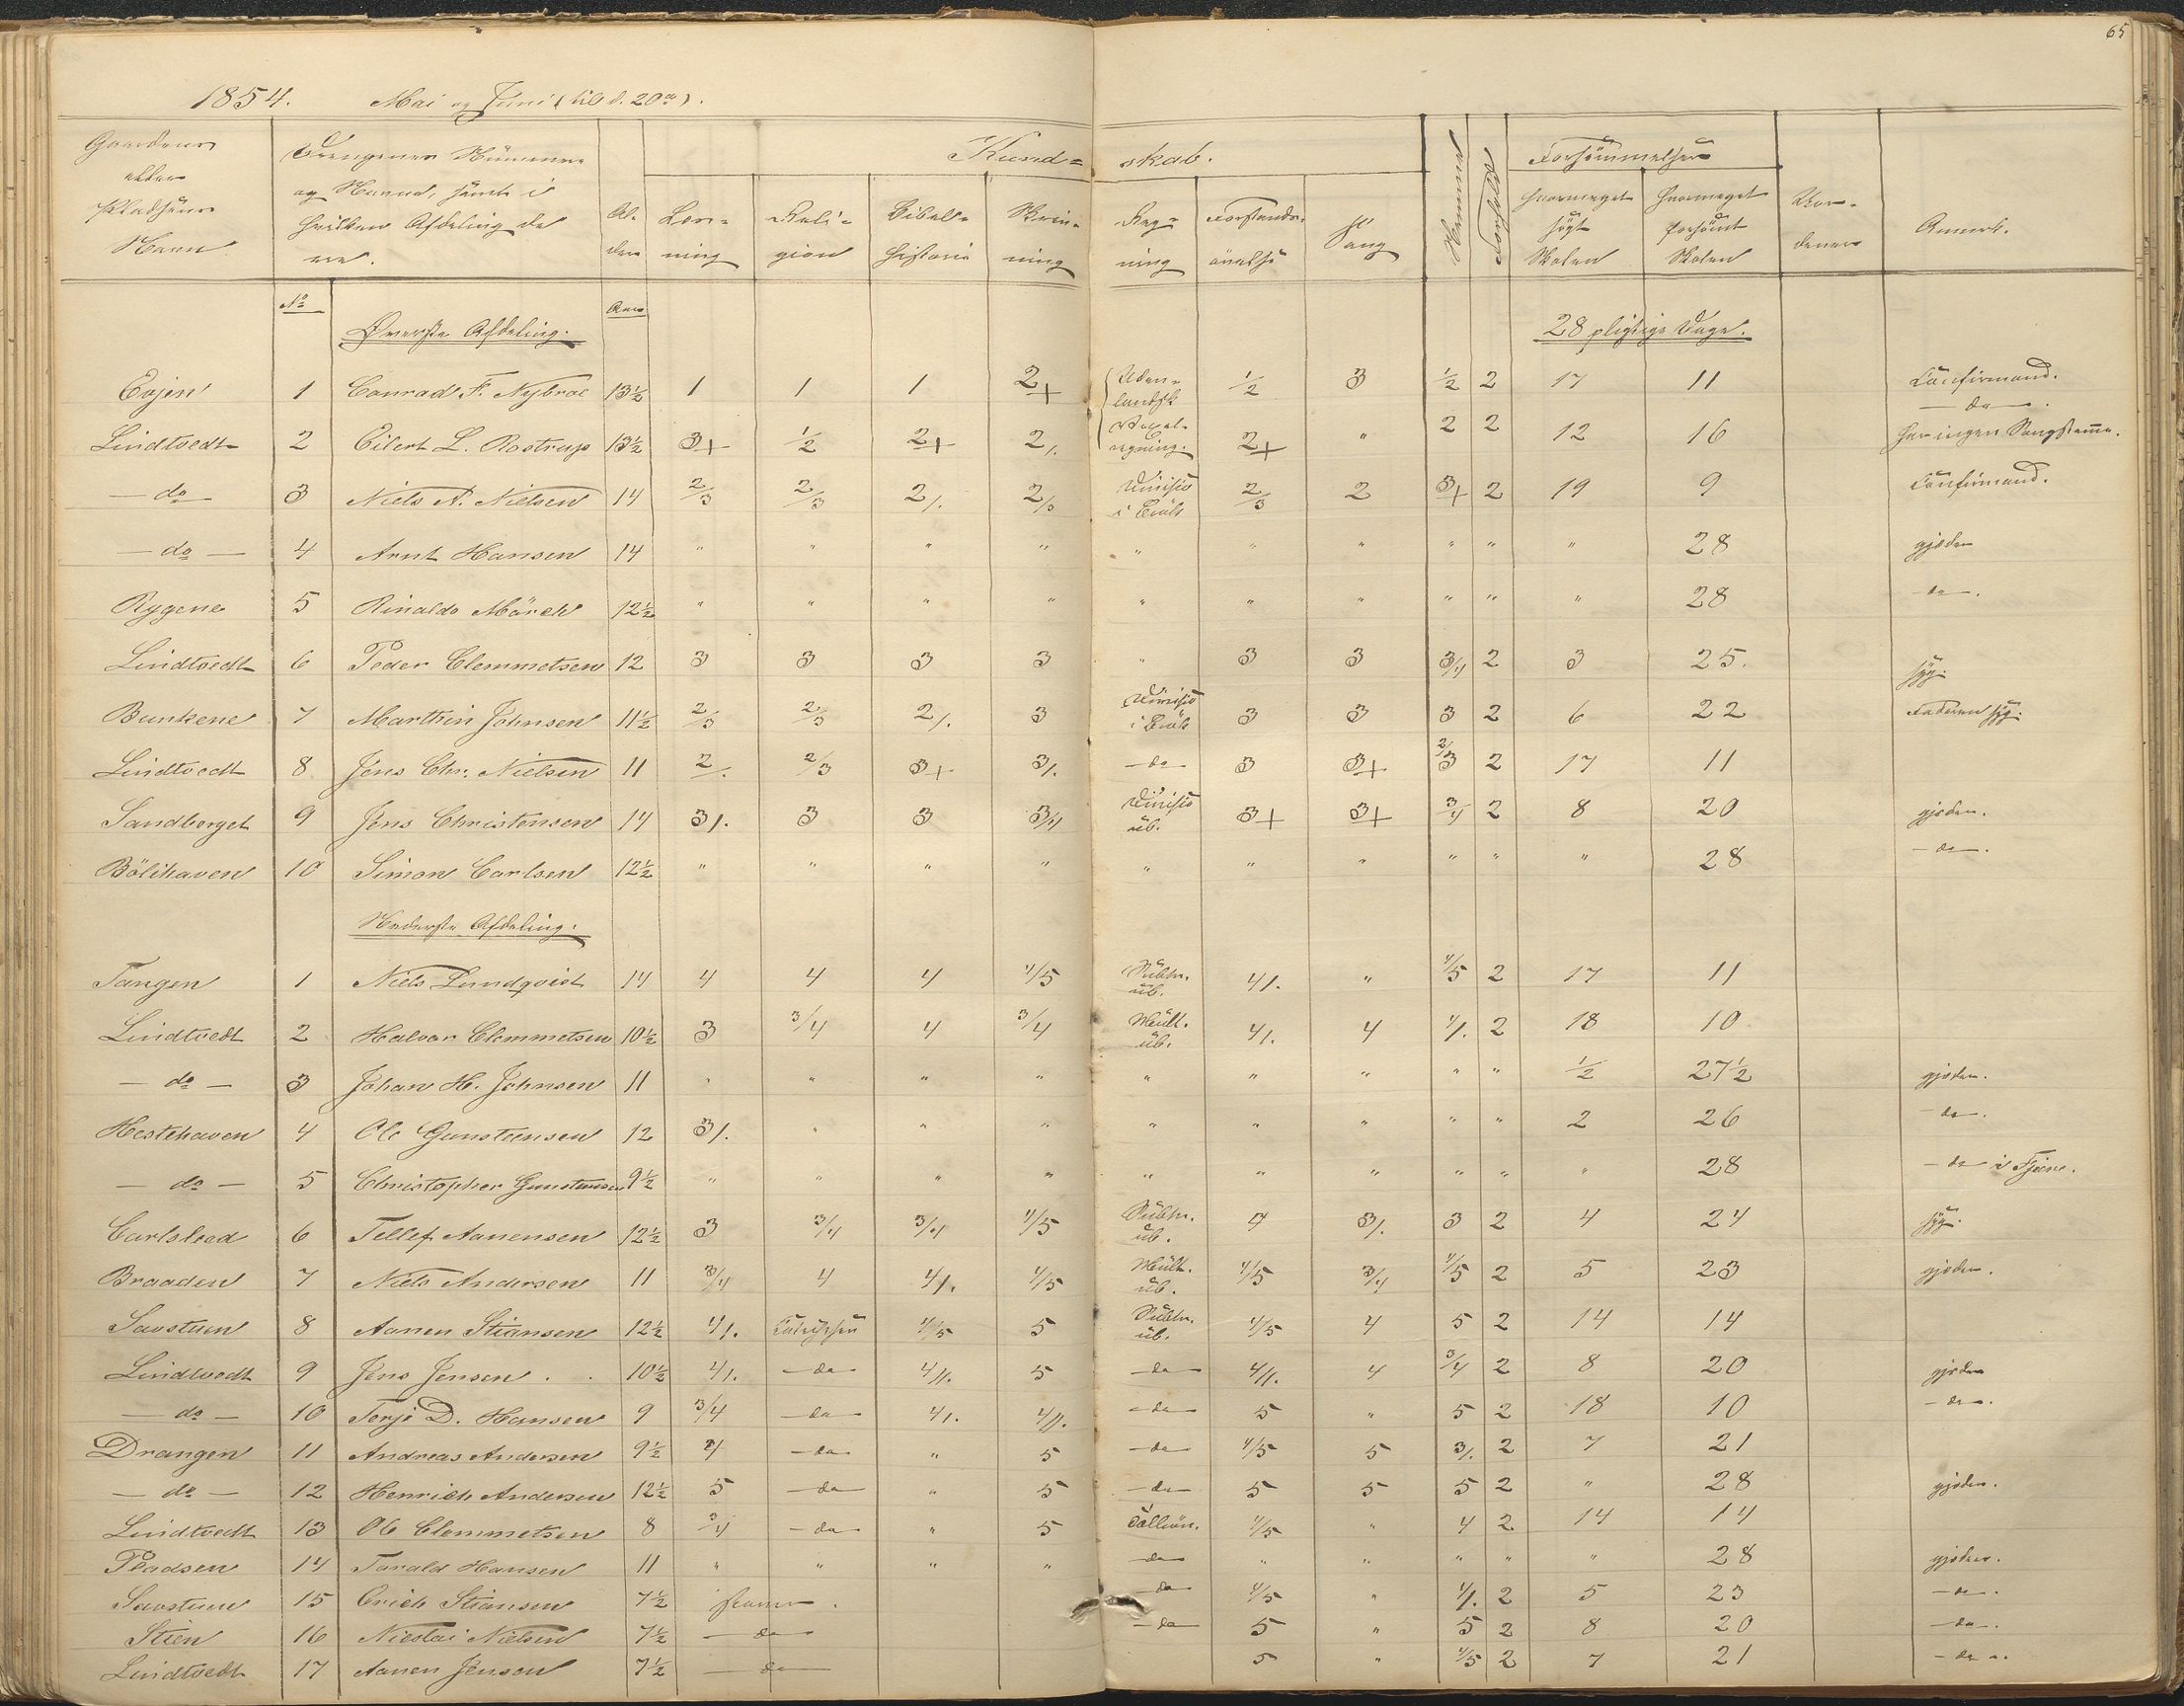 65
1854. Mai og Juni (til d. 20de).
Gaardens eller Pladsens Navn
Drengenes Nummer og Navne, samt i hvilken Afdeling de ere.
Alder
Kundskab.
Læsning
Religion
Bibelhistorie
Skrivning
Regning
Forstandsövelse
Sang
Nemme
Forhold
Forsömmelser
hvormeget sögt Skolen
hvormeget forsömt Skolen
Anmrk.
No
Aar
Överste Afdeling.
28 pligtige Dage.
Evjen 1 Conrad F. Nybroe 13½ 1 1 1 2+ Uden- ½ 3 ½ 2 17 11 Confirmand.
Lindtvedt 2 Eilert L. Rostrup 13½ 3+ ½ 2+ 2/. regning. 2+ " 2 2 12 16 do. har ingen Sangstemme.
do 3 Niels A. Nielsen 14 2/3 2/3 2/. 2/3 Divisio i Brök 2/3 2 3+ 2 19 9 Confirmand.
do 4 Arnt Hansen 14 " " " " " " " " " " 28 gjeden
Rygene 5 Rinaldo Mörch 12½ " " " " " " " " " " 28 do.
Lindtvedt 6 Peder Clemmetsen 12 3 3 3 3 " 3 3 3/4 2 3 25. syg.
Bunkene 7 Marthin Johnsen 11½ 2/3 2/3 2/. 3 Divisio i Brök 3 3 3 2 6 22 Faderen syg.
Lindtvedt 8 Jens Chr. Nielsen 11 2/. 2/3 3+ 3/. do 3 3+ 2/3 2 17 11
Sandberget 9 Jens Christensen 14 3/. 3 3 3/4 Divisio ub. 3+ 3+ 3/4 2 8 20 gjeden.
Bölihaven 10 Simon Carlsen 12½ " " " " " " " " " " 28 do.
Nederste Afdeling.
Tangen 1 Niels Lundqvist 14 4 4 4 4/5 Subtr. ub. 4/. " 4/5 2 17 11
Lindtvedt 2 Halvor Clemmetsen 10½ 3 3/4 4 3/4 Mult. ub. 4/. 4 4/. 2 18 10
do 3 Johan H. Johnsen 11 " " " " " " " " " ½ 27½ gjeden.
Hestehaven 4 Ole Gunstensen 12 3/. " " " " " " " " 2 26 do.
do 5 Christopher Gunstensen 9½ " " " " " " " " " " 28 do i Fjere.
Carlstad 6 Tellef Aanensen 12½ 3 3/4 3/4 4/5 Subtr. ub. 4 3/. 3 2 4 24 syg.
Braaden 7 Niels Andersen 11 3/4 4 4/. 4/5 Mult. ub. 4/5 3/4 4/5 2 5 23 gjeden.
Savstuen 8 Aanen Stiansen 12½ 4/. 4/5 5 Subtr. ub. 4/5 4 5 2 14 14
Lindtvedt 9 Jens Jensen 10½ 4/. do 4//. 5 do 4//. 4 3/4 2 8 20 gjeden
do 10 Terje D. Hansen 9 3/4 do 4/. 4//. do 5 " 5 2 18 10 do.
Drangen 11 Andreas Andersen 9½ 4 do " 5 do 4/5 5 3/. 2 7 21
do 12 Henrich Andersen 12½ 5 do " 5 do 5 5 5 2 " 28 gjeden.
Lindtvedt 13 Ole Clemmetsen 8 3/4 do " 5 4/5 " 4 2 14 14
Pladsen 14 Tarald Hansen 11 " " " " do " " " " " 28 gjeden.
Savstuen 15 Erich Stiansen 7½ do 4/5 " 4/. 2 5 23 do.
Stien 16 Nicolai Nielsen 7½ do do 5 " 5 2 8 20 do.
Lindtvedt 17 Aanen Jensen 7½ do 5 " 4/5 2 7 21 do.